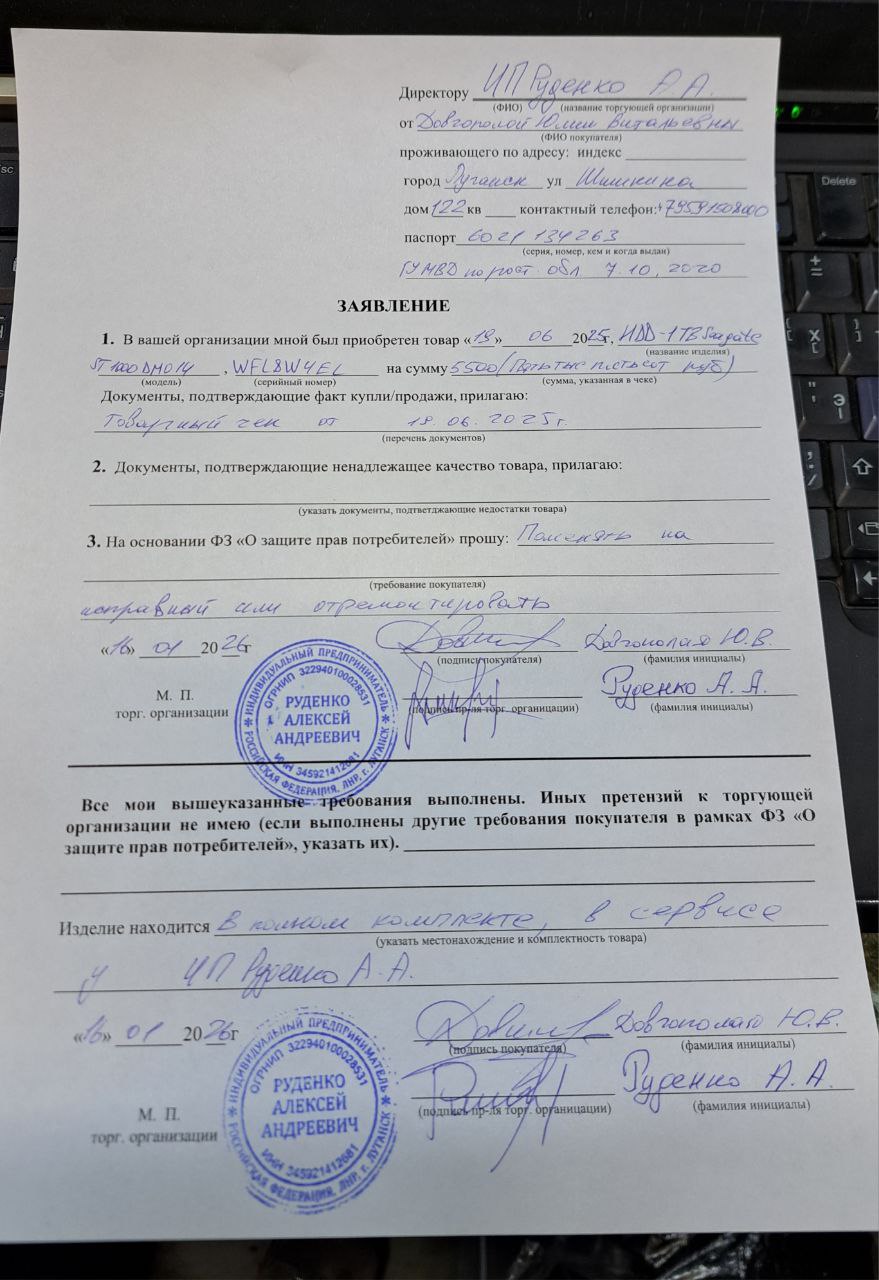 Директору ИП Руденко А.А.
(ФИО) (название торгующей организации)
от Довгополой Юлии Витальевны
(ФИО покупателя)
проживающего по адресу: индекс
город Луганск ул Шишкина
дом 122 кв контактный телефон:
паспорт 6021 134263
(серия, номер, кем и когда выдан)
ГУ МВД по рост. обл. 7.10.2020
ЗАЯВЛЕНИЕ
1. В вашей организации мной был приобретен товар «19» 06 2025г, HDD-1TB Seagate
(название изделия)
ST1000DM014, WFL8W4EL на сумму 5500 (Пять тыс пятьсот руб)
(модель) (серийный номер) (сумма, указанная в чеке)
Документы, подтверждающие факт купли/продажи, прилагаю:
Товарный чек от 19.06.2025г.
(перечень документов)
2. Документы, подтверждающие ненадлежащее качество товара, прилагаю:
(указать документы, подтветджающие недостатки товара)
3. На основании ФЗ «О защите прав потребителей» прошу: Поменять на
(требование покупателя)
исправный или отремонтировать
«16» 01 2026г Довгополая Ю.В.
(подпись покупателя) (фамилия инициалы)
М. П. Руденко А. А.
торг. организации (подпись пр-ля торг. органицации) (фамилия инициалы)
ИНДИВИДУАЛЬНЫЙ ПРЕДПРИНИМАТЕЛЬ
ОГРНИП 322940100028531
РУДЕНКО
АЛЕКСЕЙ
АНДРЕЕВИЧ
ИНН 345921412681
РОССИЙСКАЯ ФЕДЕРАЦИЯ, ЛНР, г. ЛУГАНСК
Все мои вышеуказанные требования выполнены. Иных претензий к торгующей
организации не имею (если выполнены другие требования покупателя в рамках ФЗ «О
защите прав потребителей», указать их).
Изделие находится В полном комплекте, в сервисе
(указать местонахождение и комплектность товара)
у ИП Руденко А.А.
«16» 01 2026г Довгополая Ю.В.
(подпись покупателя) (фамилия инициалы)
Руденко А.А.
М. П. (подпись пр-ля торг. органицации) (фамилия инициалы)
торг. организации
ИНДИВИДУАЛЬНЫЙ ПРЕДПРИНИМАТЕЛЬ
ОГРНИП 322940100028531
РУДЕНКО
АЛЕКСЕЙ
АНДРЕЕВИЧ
ИНН 345921412681
РОССИЙСКАЯ ФЕДЕРАЦИЯ, ЛНР, г. ЛУГАНСК
Delete